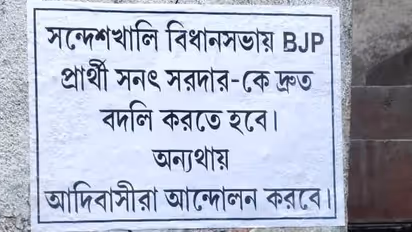 সন্দেশখালি বিধানসভায় BJP
প্রার্থী সনৎ সরদার-কে দ্রুত
বদলি করতে হবে।
অন্যথায়
আদিবাসীরা আন্দোলন করবে।